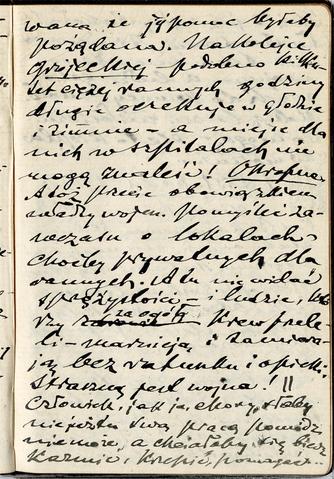 wana że jej pomoc byłaby
pożądana. Na kolejce
grójeckiej – podobno kilku-
set ciężej rannych godziny
długie oczekuje w głodzie
i zimnie – a miejsc dla
nich w szpitalach nie
mogą znaleść! Okropne.
A toż przecie obowiązkiem
władzy wojen. pomyśleć za-
wczasu o lokalach
choćby prywatnych dla
rannych. A tu nie widać
sprężystości – i ludzie, któ-
rzy za ogół – krew prze-
li – marzną, i zamiera-
ją bez ratunku i opieki.
Straszną jest wojna! ||
Człowiek, jak ja, chory, słaby
nie swą pracą pomódz
nie może, a chciałby się
karmić, krzepić, pomagać...